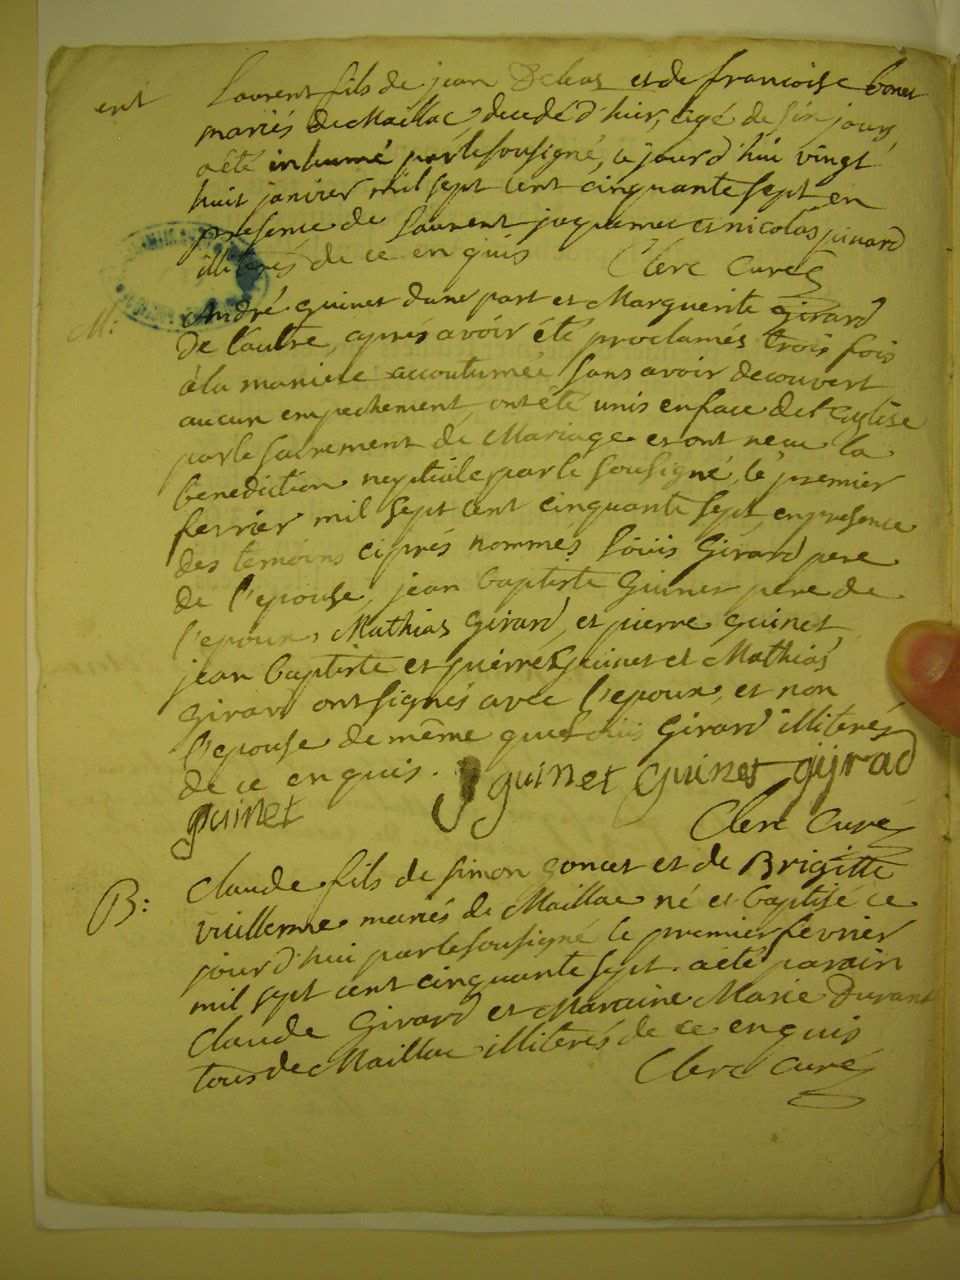 ent Laurent fils de jean Debas et de francoise bonet
mariés de Maillac, decedé d'hier, agé de six jours
a été inhumé par le sousigné, ce jourd'hui vingt
huit janvier mil sept cent cinquante sept en
presence de Laurent jaquemet et nicolas pinard
illiterés de ce enquis Clerc Curé
M: André Guinet dune part et Marguerite Girard
De l'autre, aprés avoir été proclamés trois fois
à la maniere accoutumée sans avoir decouvert
aucun empechement, ont été unis en face de l'Eglise
par le sacrement de Mariage et ont recu la
benediction nuptiale par le sousigné, le premier
fevrier mil sept cent cinquante sept, en presence
des temoins ciprés nommés Loüis Girard pere
de l'epouse, jean baptiste Guinet pere de
l'epoux, Mathias Girard, et pierre Guinet
jean baptiste et pierre Guinet et Mathias
Girard ont signés avec l'epoux, et non
l'epouse de même que Loüis Girard illiterés
de ce enquis. J guinet Guinet gijrad
guinet
Clerc Curé
B: Claude fils de Simon goncet et de Brigitte
vuillerme mariés de Maillac né et baptisé ce
jourd'hui par le sousigné le premier fevrier
mil sept cent cinquante sept. a été parain
Claude Girard et Maraine Marie Durant
tous de Maillac illiterés de ce enquis
Clerc Curé